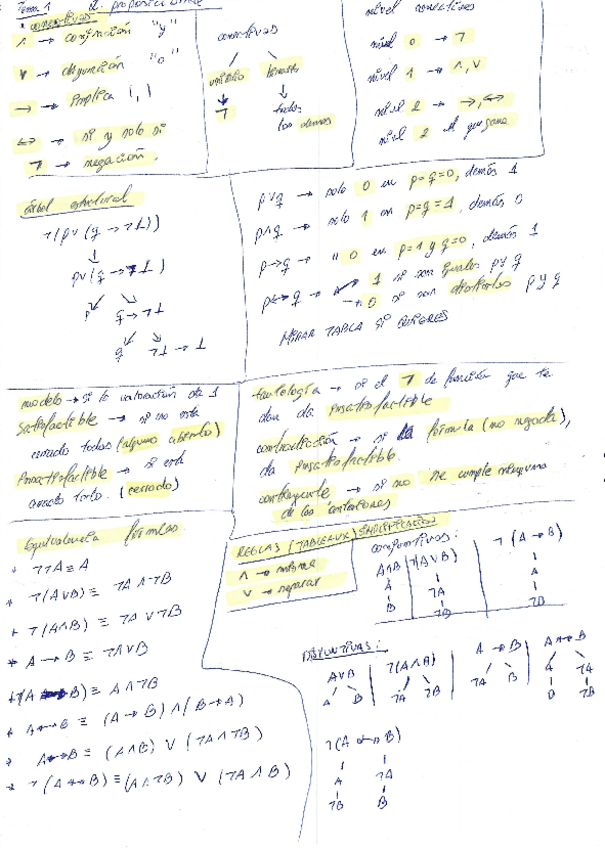 Tema 1 L. proposicional
* conectivas
∧ → conjunción "y"
∨ → disyunción "o"
→ → implica (,)
↔ → si y solo si
¬ → negación.
conectivas
unaria binarias
↓ ↓
¬ todos
los demas
nivel conectivas
nivel 0 → ¬
nivel 1 → ∧, ∨
nivel 2 → →, ↔
nivel 2 el que gana
árbol estructural
¬(p∨(q → ¬⊥))
↓
p∨(q → ¬⊥)
p q → ¬⊥
q ¬⊥ → ⊥
p∨q → solo 0 en p=q=0, demás 1
p∧q → solo 1 en p=q=1, demás 0
p→q → " 0 en p=1 y q=0, demás 1
p↔q → 1 si son iguales p y q
→ 0 si son distintos p y q
MIRAR TABLA SI QUIERES
modelo → si la valoración da 1
Satisfactible → si no está
cerrado todos (alguno abierto)
Insatisfactible → si está
cerrado todo. (cerrado)
tautología → si el ¬ de función que te
dan da insatisfactible
contradicción → si la fórmula (no negada),
da insatisfactible.
contingente → si no se cumple ninguna
de las anteriores
Equivalencia fórmulas
* ¬¬A ≡ A
* ¬(A∨B) ≡ ¬A∧¬B
* ¬(A∧B) ≡ ¬A∨¬B
* A→B ≡ ¬A∨B
* ¬(A→B) ≡ A∧¬B
* A↔B ≡ (A→B)∧(B→A)
* A↔B ≡ (A∧B) ∨ (¬A∧¬B)
* ¬(A↔B) ≡ (A∧¬B) ∨ (¬A∧B)
REGLAS (TABLEAUX) SIMPLIFICACIÓN
∧ → misma
∨ → separar
conjuntivas:
A∧B ¬(A∨B) ¬(A→B)
A ¬A A
B ¬B ¬B
DISYUNTIVAS:
A∨B ¬(A∧B) A→B A↔B
A B ¬A ¬B ¬A B A ¬A
B ¬B
¬(A↔B)
A ¬A
¬B B